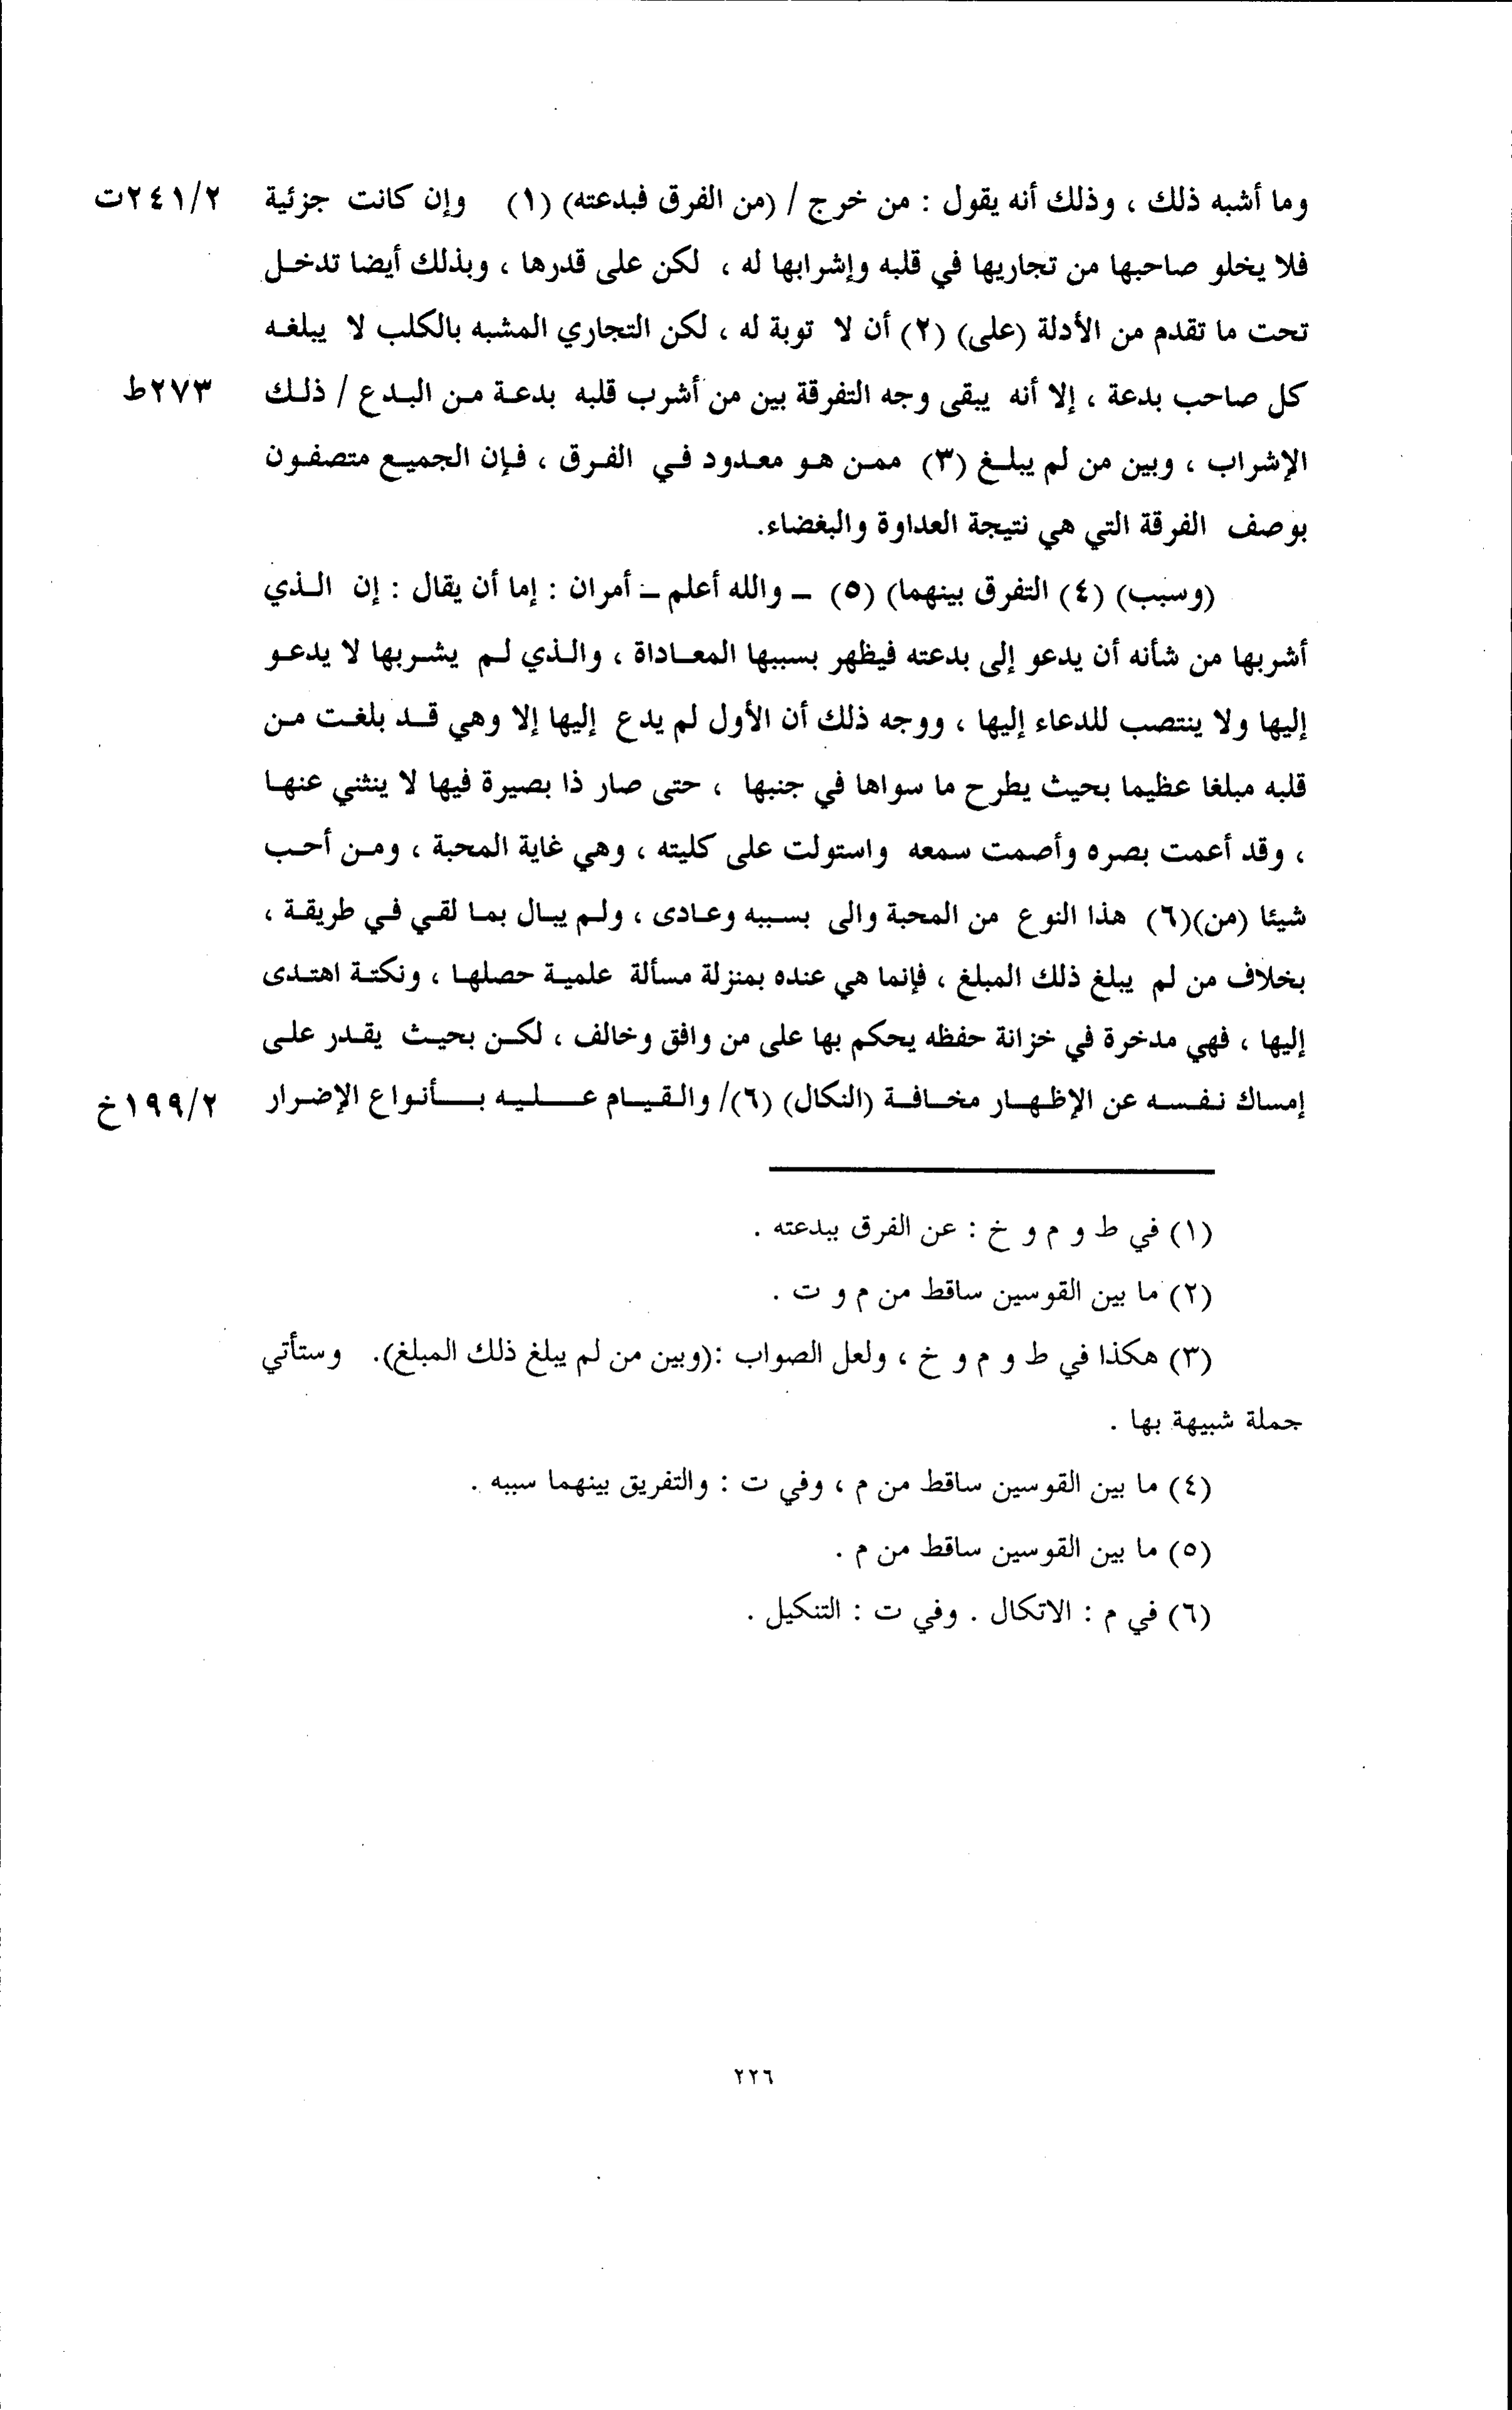 وما أشبه ذلك ، وذلك أنه يقول : من خرج / (من الفرق فبدعته) (١) وإن كانت جزئية ٢/٢٤١ت
فلا يخلو صاحبها من تجاريها في قلبه وإشرابها له ، لكن على قدرها ، وبذلك أيضا تدخل
تحت ما تقدم من الأدلة (على) (٢) أن لا توبة له ، لكن التجاري المشبه بالكلب لا يبلغه
كل صاحب بدعة ، إلا أنه يبقى وجه التفرقة بين من أشرب قلبه بدعة من البدع / ذلك ٢٧٣ط
الإشراب ، وبين من لم يبلغ (٣) ممن هو معدود في الفرق ، فإن الجميع متصفون
بوصف الفرقة التي هي نتيجة العداوة والبغضاء.
(وسبب) (٤) التفرق بينهما) (٥) – والله أعلم – أمران : إما أن يقال : إن الذي
أشربها من شأنه أن يدعو إلى بدعته فيظهر بسببها المعاداة ، والذي لم يشربها لا يدعو
إليها ولا ينتصب للدعاء إليها ، ووجه ذلك أن الأول لم يدع إليها إلا وهي قد بلغت من
قلبه مبلغا عظيما بحيث يطرح ما سواها في جنبها ، حتى صار ذا بصيرة فيها لا ينثني عنها
، وقد أعمت بصره وأصمت سمعه واستولت على كليته ، وهي غاية المحبة ، ومن أحب
شيئا (من)(٦) هذا النوع من المحبة والى بسببه وعادى ، ولم يبال بما لقي في طريقة ،
بخلاف من لم يبلغ ذلك المبلغ ، فإنما هي عنده بمنزلة مسألة علمية حصلها ، ونكتة اهتدى
إليها ، فهي مدخرة في خزانة حفظه يحكم بها على من وافق وخالف ، لكن بحيث يقدر على
إمساك نفسه عن الإظهار مخافة (النكال) (٦)/ والقيام عليه بأنواع الإضرار ٢/١٩٩خ
(١) في ط و م و خ : عن الفرق ببدعته .
(٢) ما بين القوسين ساقط من م و ت .
(٣) هكذا في ط و م و خ ، ولعل الصواب :(وبين من لم يبلغ ذلك المبلغ). وستأتي
جملة شبيهة بها .
(٤) ما بين القوسين ساقط من م ، وفي ت : والتفريق بينهما سببه .
(٥) ما بين القوسين ساقط من م .
(٦) في م : الاتكال . وفي ت : التنكيل .
٢٢٦